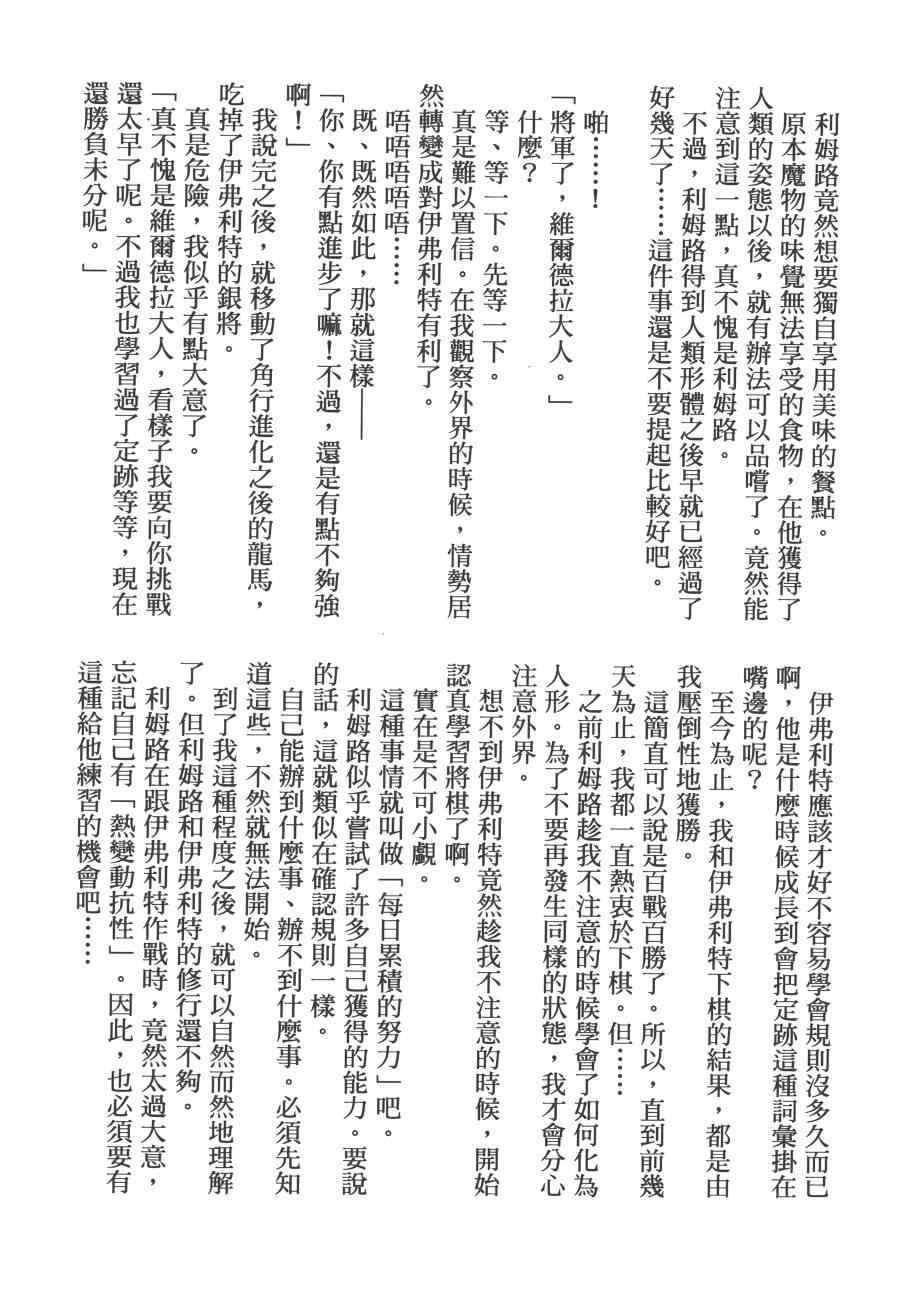 利姆路竟然想要獨自享用美味的餐點。
原本魔物的味覺無法享受的食物，在他獲得了
人類的姿態以後，就有辦法可以品嚐了。竟然能
注意到這一點，真不愧是利姆路。
不過，利姆路得到人類形體之後早就已經過了
好幾天了……這件事還是不要提起比較好吧。
啪……！
「將軍了，維爾德拉大人。」
什麼？
等、等一下。先等一下。
真是難以置信。在我觀察外界的時候，情勢居
然轉變成對伊弗利特有利了。
唔唔唔唔……
既、既然如此，那就這樣——
「你、你有點進步了嘛！不過，還是有點不夠強
啊！」
我說完之後，就移動了角行進化之後的龍馬，
吃掉了伊弗利特的銀將。
真是危險，我似乎有點大意了。
「真不愧是維爾德拉大人，看樣子我要向你挑戰
還太早了呢。不過我也學習過了定跡等等，現在
還勝負未分呢。」
伊弗利特應該才好不容易學會規則沒多久而已
啊，他是什麼時候成長到會把定跡這種詞彙掛在
嘴邊的呢？
至今為止，我和伊弗利特下棋的結果，都是由
我壓倒性地獲勝。
這簡直可以說是百戰百勝了。所以，直到前幾
天為止，我都一直熱衷於下棋。但……
之前利姆路趁我不注意的時候學會了如何化為
人形。為了不要再發生同樣的狀態，我才會分心
注意外界。
想不到伊弗利特竟然趁我不注意的時候，開始
認真學習將棋了啊。
實在是不可小覷。
這種事情就叫做「每日累積的努力」吧。
利姆路似乎嘗試了許多自己獲得的能力。要說
的話，這就類似在確認規則一樣。
自己能辦到什麼事、辦不到什麼事。必須先知
道這些，不然就無法開始。
到了我這種程度之後，就可以自然而然地理解
了。但利姆路和伊弗利特的修行還不夠。
利姆路在跟伊弗利特作戰時，竟然太過大意，
忘記自己有「熱變動抗性」。因此，也必須要有
這種給他練習的機會吧……